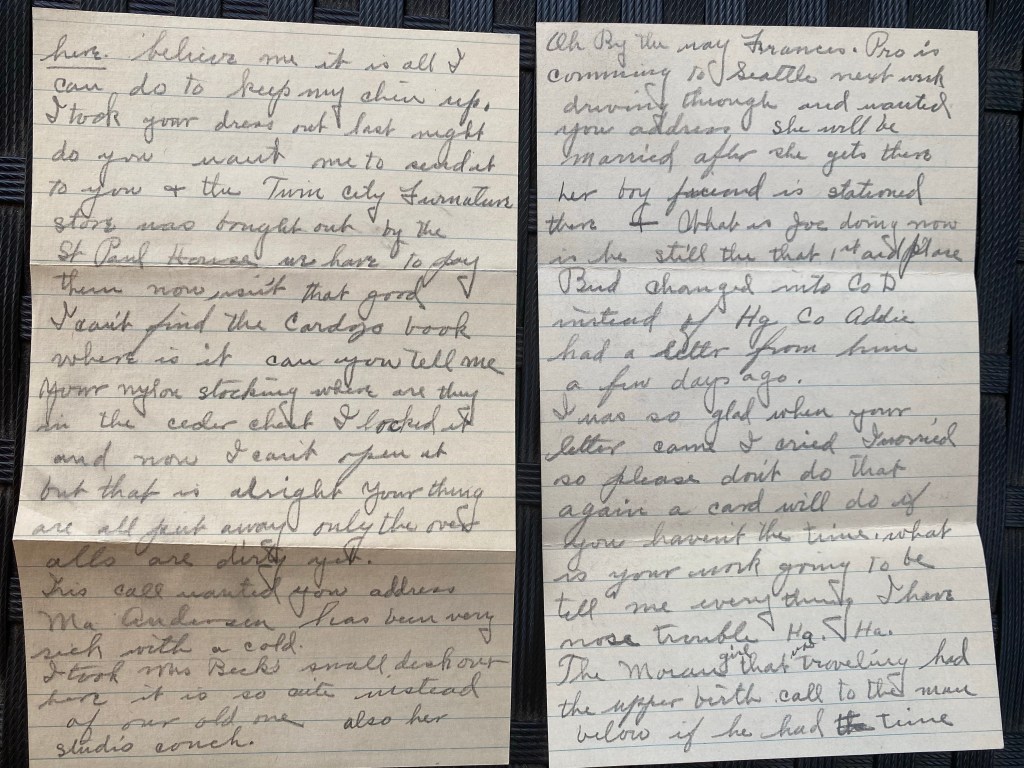 here. believe me it is all I
can do to keep my chin up.
I took your dress out last night
do you want me to send it
to you & the Twin City Furnature
store was bought out by the
St Paul House we have to pay
them now isn't that good
I can't find the Cardozo book
where is it can you tell me
Your nylon stocking where are they
in the ceder chest I locked it
and now I can't open it
but that is alright Your thing
are all put away only the over
alls are dirty yet.
call wanted you address
Ma Anderson has been very
sick with a cold.
I took Mrs Beck's small desk over
here it is so cute instead
of our old one also her
studio couch.
Oh By the way Frances. Pro is
comming to Seattle next week
driving through and wanted
you address she will be
married after she gets there
her boy friend is stationed
there & What is Joe doing now
is he still the that 1st aid place
Bud changed into Co D
instead of Hq Co Addie
had a letter from him
a few days ago.
I was so glad when your
letter came I cried I worried
so please don't do that
again a card will do if
you haven't the time. what
is your work going to be
tell me every thing I have
nose trouble Ha. Ha.
The Moran girl that was traveling had
the upper birth call to the man
below if he had the time